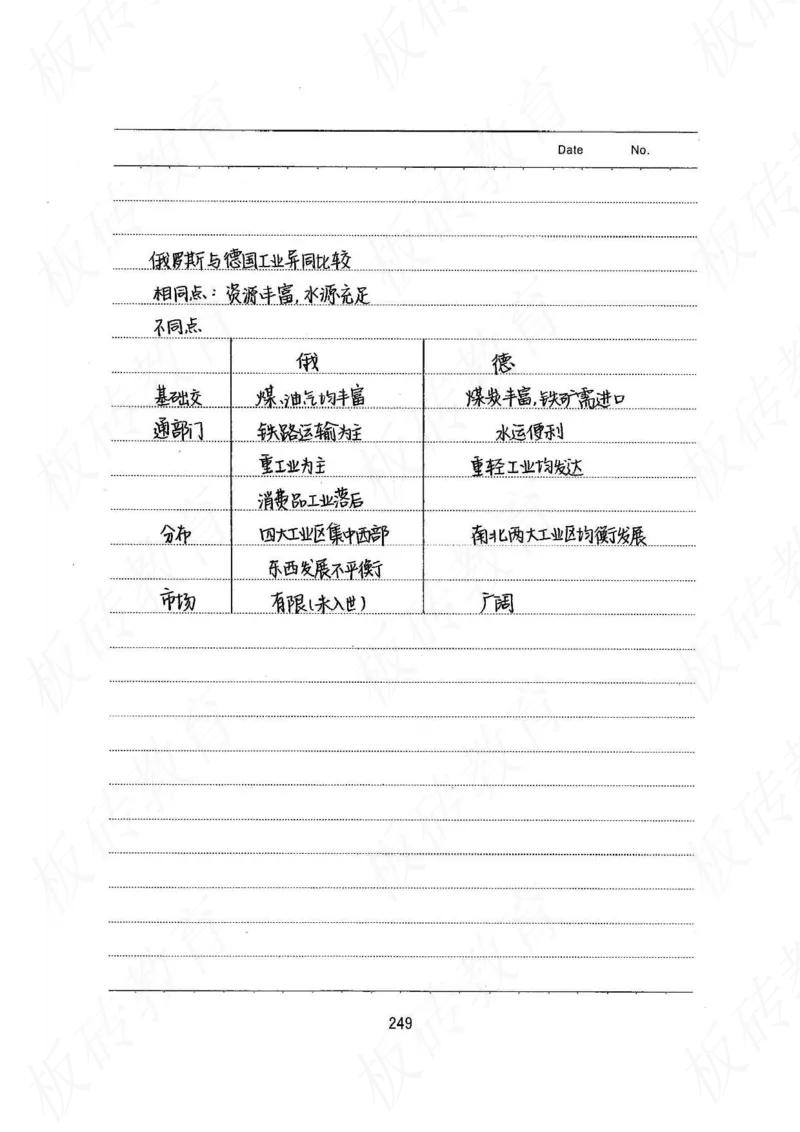 Date No.
俄罗斯与德国工业异同比较
相同点：资源丰富,水源充足
不同点
俄 德
基础交 煤、油气均丰富 煤炭丰富,铁矿需进口
通部门 铁路运输为主 水运便利
重工业为主 重轻工业均发达
消费品工业落后
分布 四大工业区集中西部 南北两大工业区均衡发展
东西发展不平衡
市场 有限(未入世) 广阔
249
板砖教育